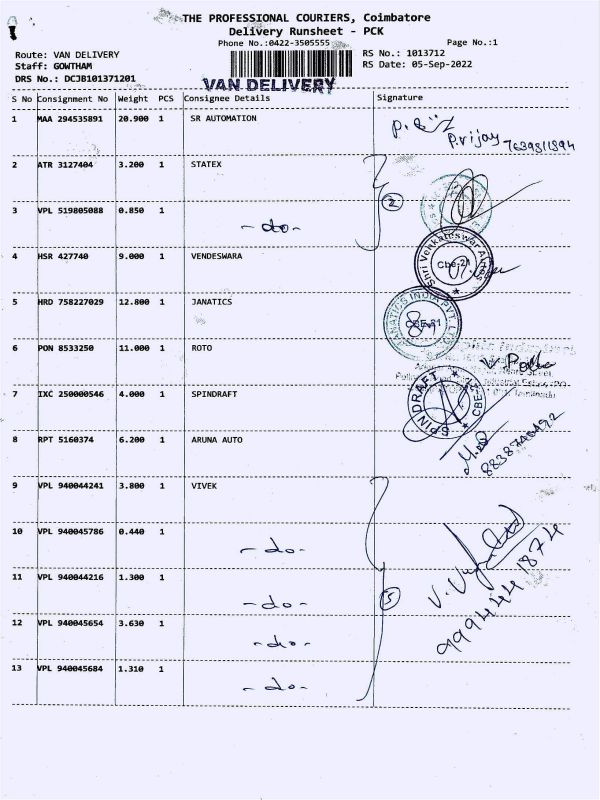 THE PROFESSIONAL COURIERS, Coimbatore
Delivery Runsheet - PCK
Phone No.:0422-3505555
Page No.:1
Route: VAN DELIVERY
RS No.: 1013712
Staff: GOWTHAM
RS Date: 05-Sep-2022
DRS No.: DCJB101371201
VAN DELIVERY
S No Consignment No Weight PCS Consignee Details Signature
1 MAA 294535891 20.900 1 SR AUTOMATION
P.Vijay 7639811394
2 ATR 3127404 3.200 1 STATEX
2
3 VPL 519805088 0.850 1 -do-
4 HSR 427740 9.000 1 VENDESWARA
Shri Venkateswar
Cbe-21
5 HRD 758227029 12.800 1 JANATICS
JANATICS INDIA PVT. LTD.
CBE-21
6 PON 8533250 11.000 1 ROTO
7 IXC 250000546 4.000 1 SPINDRAFT
SPINDRAFT
CBE-21
8 RPT 5160374 6.200 1 ARUNA AUTO
8838740492
9 VPL 940044241 3.800 1 VIVEK
10 VPL 940045786 0.440 1 -do-
11 VPL 940044216 1.300 1 -do-
5
9994441874
12 VPL 940045654 3.630 1 -do-
13 VPL 940045684 1.310 1 -do-